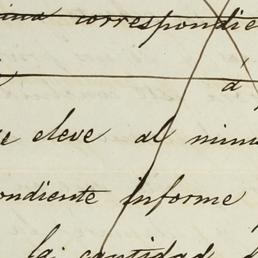 correspondie
á
e eleve al minis
ondiente informe
la cantidad d